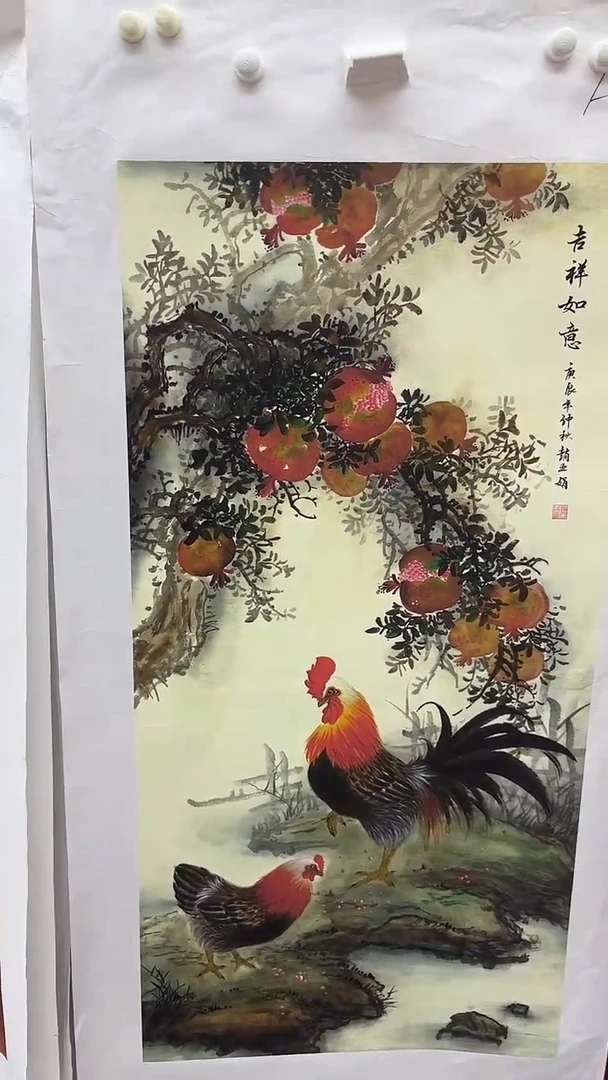 吉祥如意
庚辰年仲秋赵